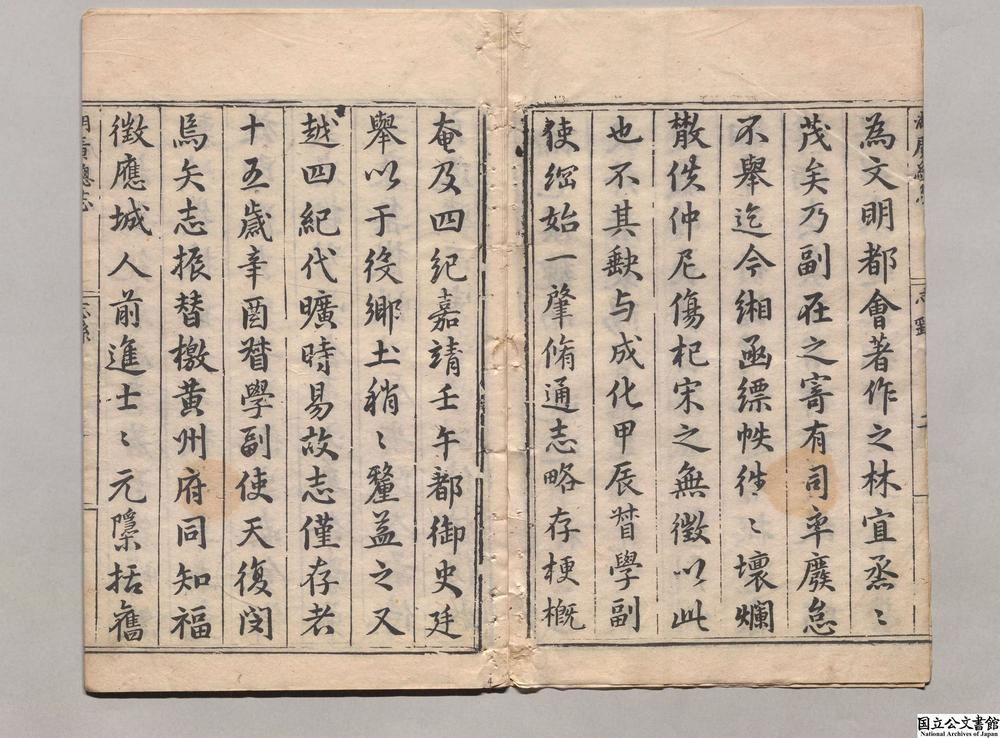 為文明都會著作之林宜烝〻
茂矣乃副在之寄有司率廢怠
不舉迄今緗函縹帙徃〻壞爛
散佚仲尼傷杞宋之無徵以此
也不其歟与成化甲辰督學副
使綱始一肇脩通志略存梗概
奄及四紀嘉靖壬午都御史廷
舉以于役鄉土稍〻釐益之又
越四紀代曠時易故志僅存者
十五歲辛酉督學副使天復閔
焉矣志振替檄黄州府同知福
徵應城人前進士〻元隱括舊
湖廣總志
国立公文書館
National Archives of Japan